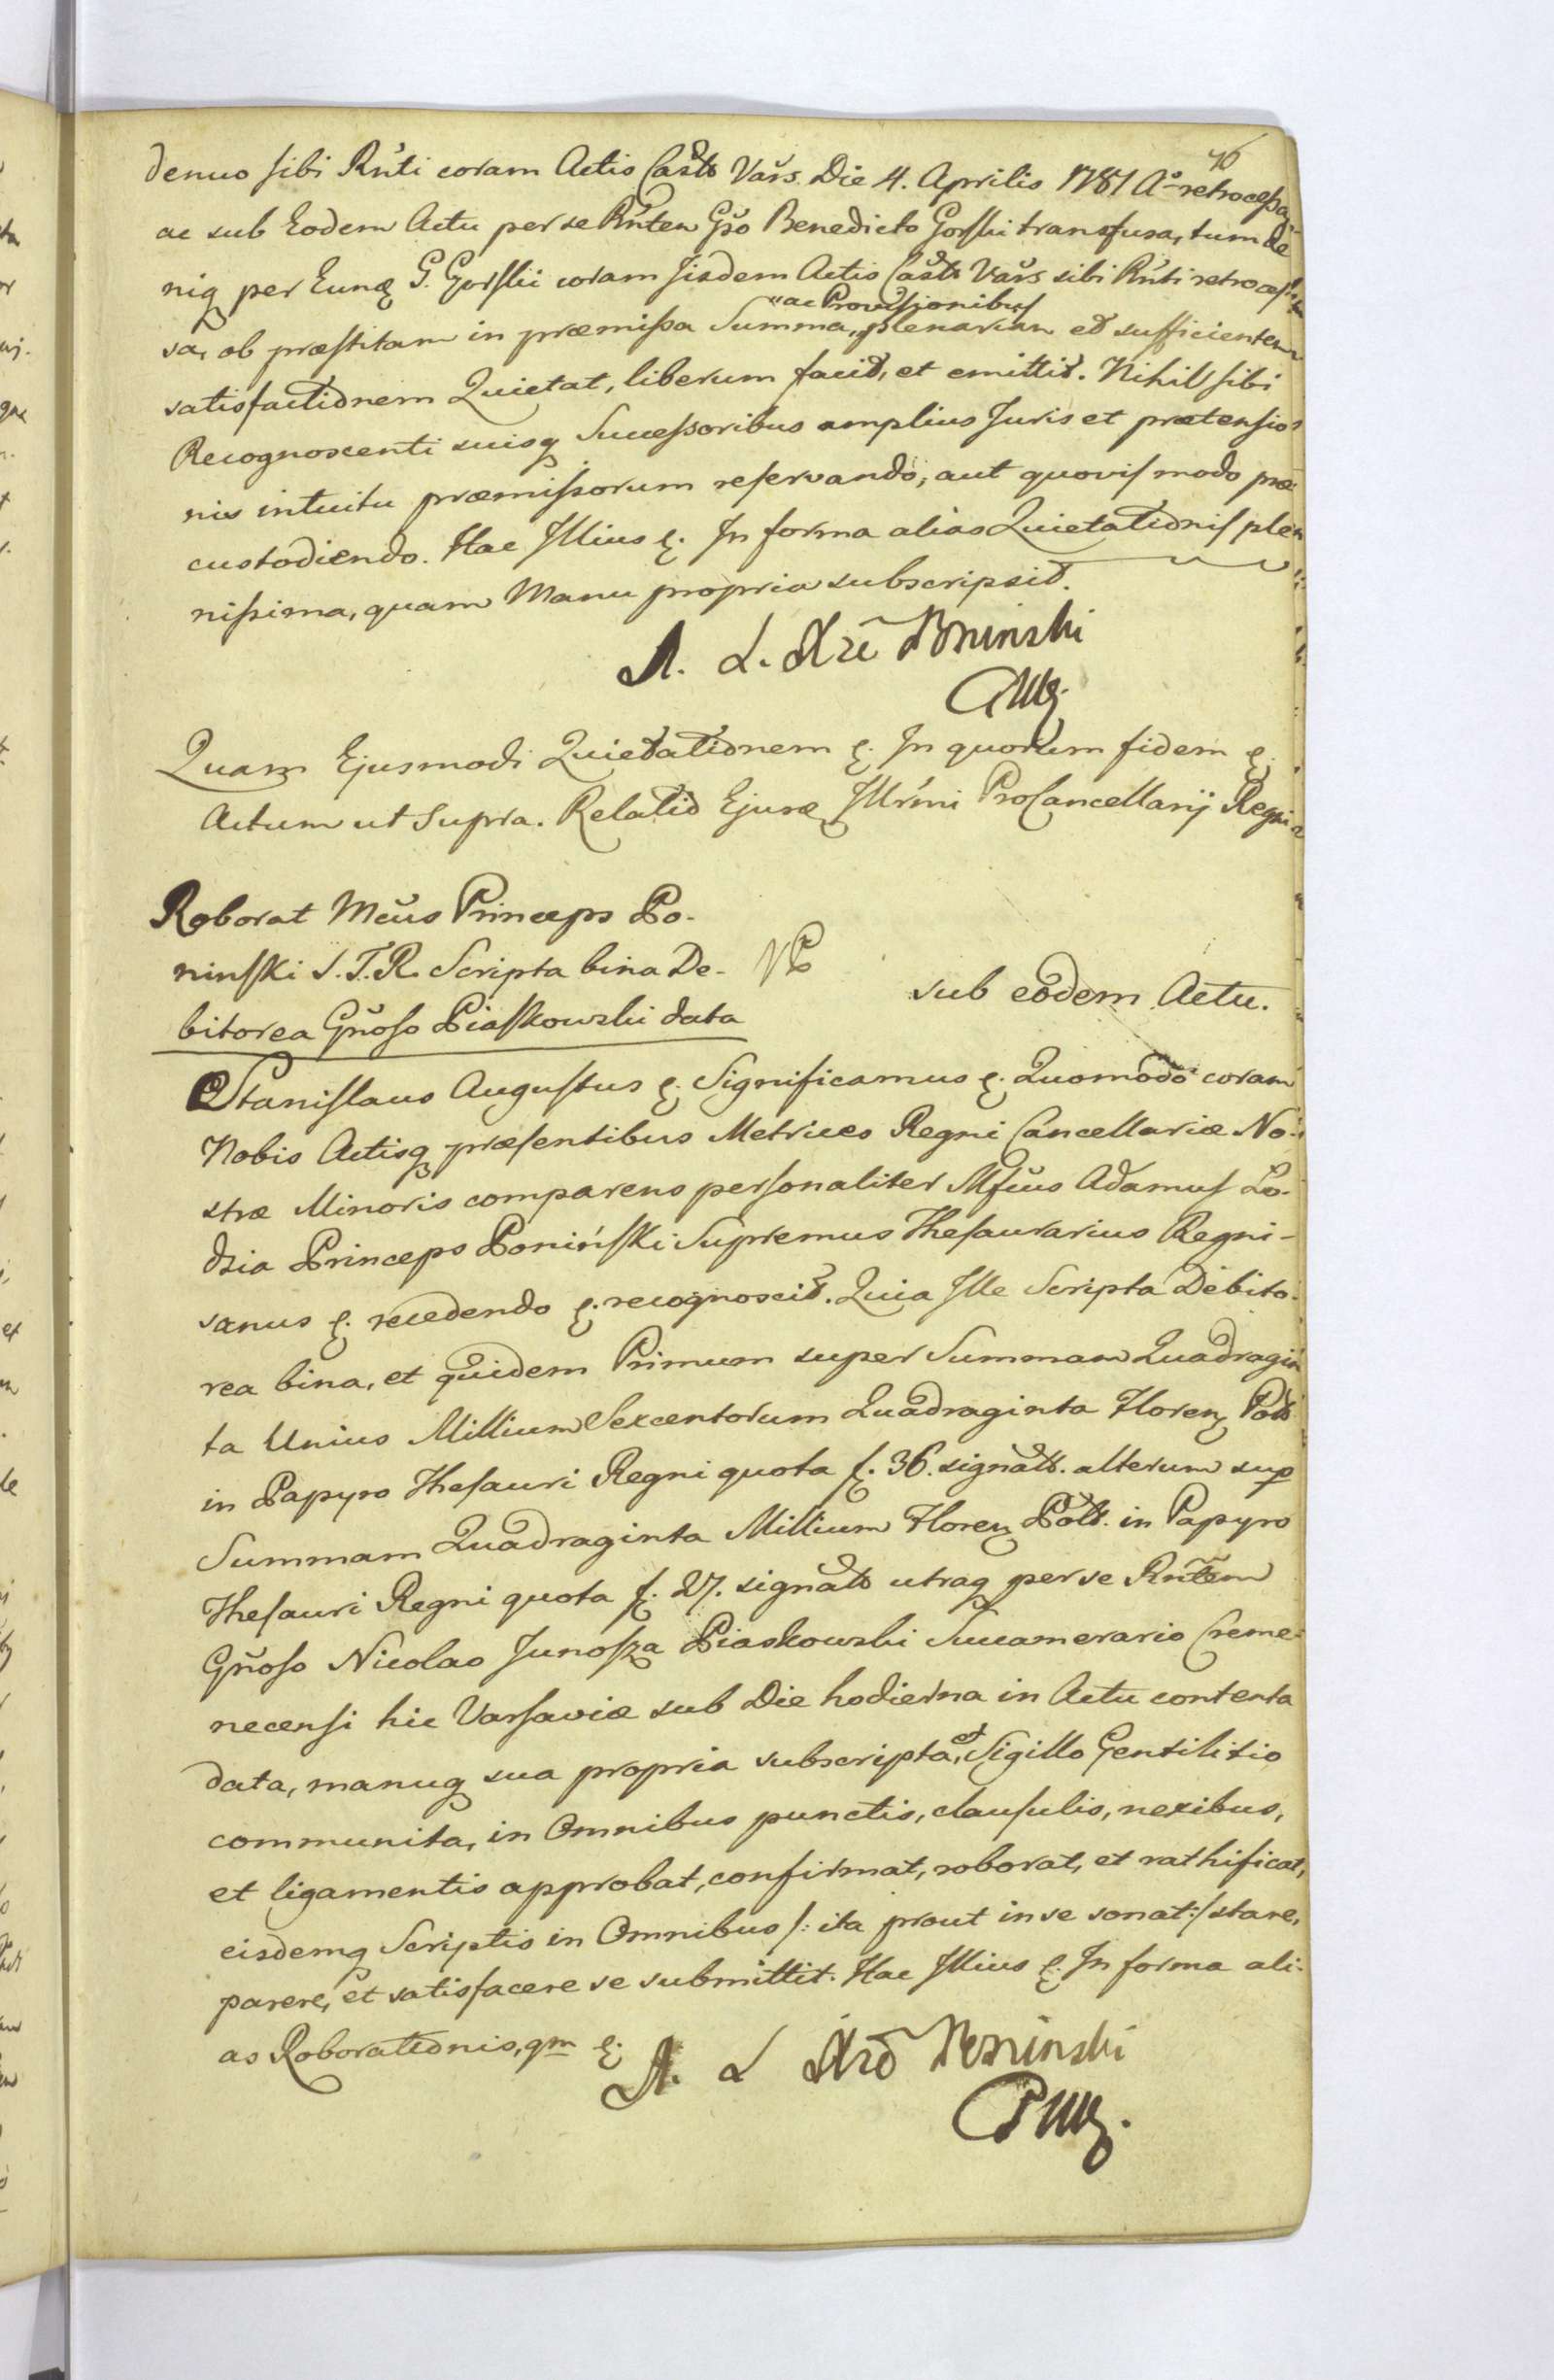 46
denuo sibi Rn̄ti coram Actis Castr Vars. Die 4. Aprilis 1781 Aº retrocessa,
ac sub Eodem Actu per se Rn̄tem Gso Benedicto Gorski transfusa, tum de
niq per Eunq G. Gorskii coram Iisdem Actis Castr Vars sibi Rn̄ti retroces
sa, ob præstitam in præmissa Summa, "ac Provisionibus plenariam et sufficientem
satisfactionem Quietat, liberum facit, et emittit. Nihil sibi
Recognoscenti suisq Successoribus amplius Juris et prætensio
nis intuitu præmissorum reservando, aut quovis modo præ
custodiendo. Hac Illius ę. In forma alias Quietationis ple
nissima, quam Manu propria subscripsit.
A. Ł. Xże Poninski
PWK.
Quam Ejusmodi Quietationem ę. In quorum fidem ę.
Actum ut supra. Relatio Ejusq Illrmi ProCancellarij Regni
Roborat Mcus Princeps Po-
ninski S.T.R. Scripta bina De-
bitorea Gnoso Piaskowski data
sub eodem Actu.
Stanislaus Augustus ę. Significamus ę. Quomodo coram
Nobis Actisq præsentibus Metrices Regni Cancellariæ No-
stræ Minoris comparens personaliter Mfcus Adamus Ło-
dzia Princeps Poniński Supremus Thesaurarius Regni
sanus ę. recedendo ę. recognoscit. Quia Ille Scripta Debito-
rea bina, et quidem Primum super Summam Quadragin
ta Unius Millium Sexcentorum Quadraginta Floren Poll
in Papyro Thesauri Regni quota f. 36. signatt. alterum sup
Summam Quadraginta Millium Floren Poll. in Papyro
Thesauri Regni quota f. 27. signatt utraq per se Rn̄tem
Gnoso Nicolao Junosza Piaskowski Succamerario Creme-
necensi hic Varsaviæ sub Die hodierna in Actu contenta
data, manuq sua propria subscripta, et Sigillo Gentilitio
communita, in Omnibus punctis, clausulis, nexibus,
et ligamentis approbat, confirmat, roborat, et rathificat,
eisdemq Scriptis in Omnibus /: ita prout in se sonat:/ stare,
parere, et satisfacere se submittit. Hac Illius ę. In forma ali-
as Roborationis, qm ę.
A. Ł Xże Poninski
PWK.